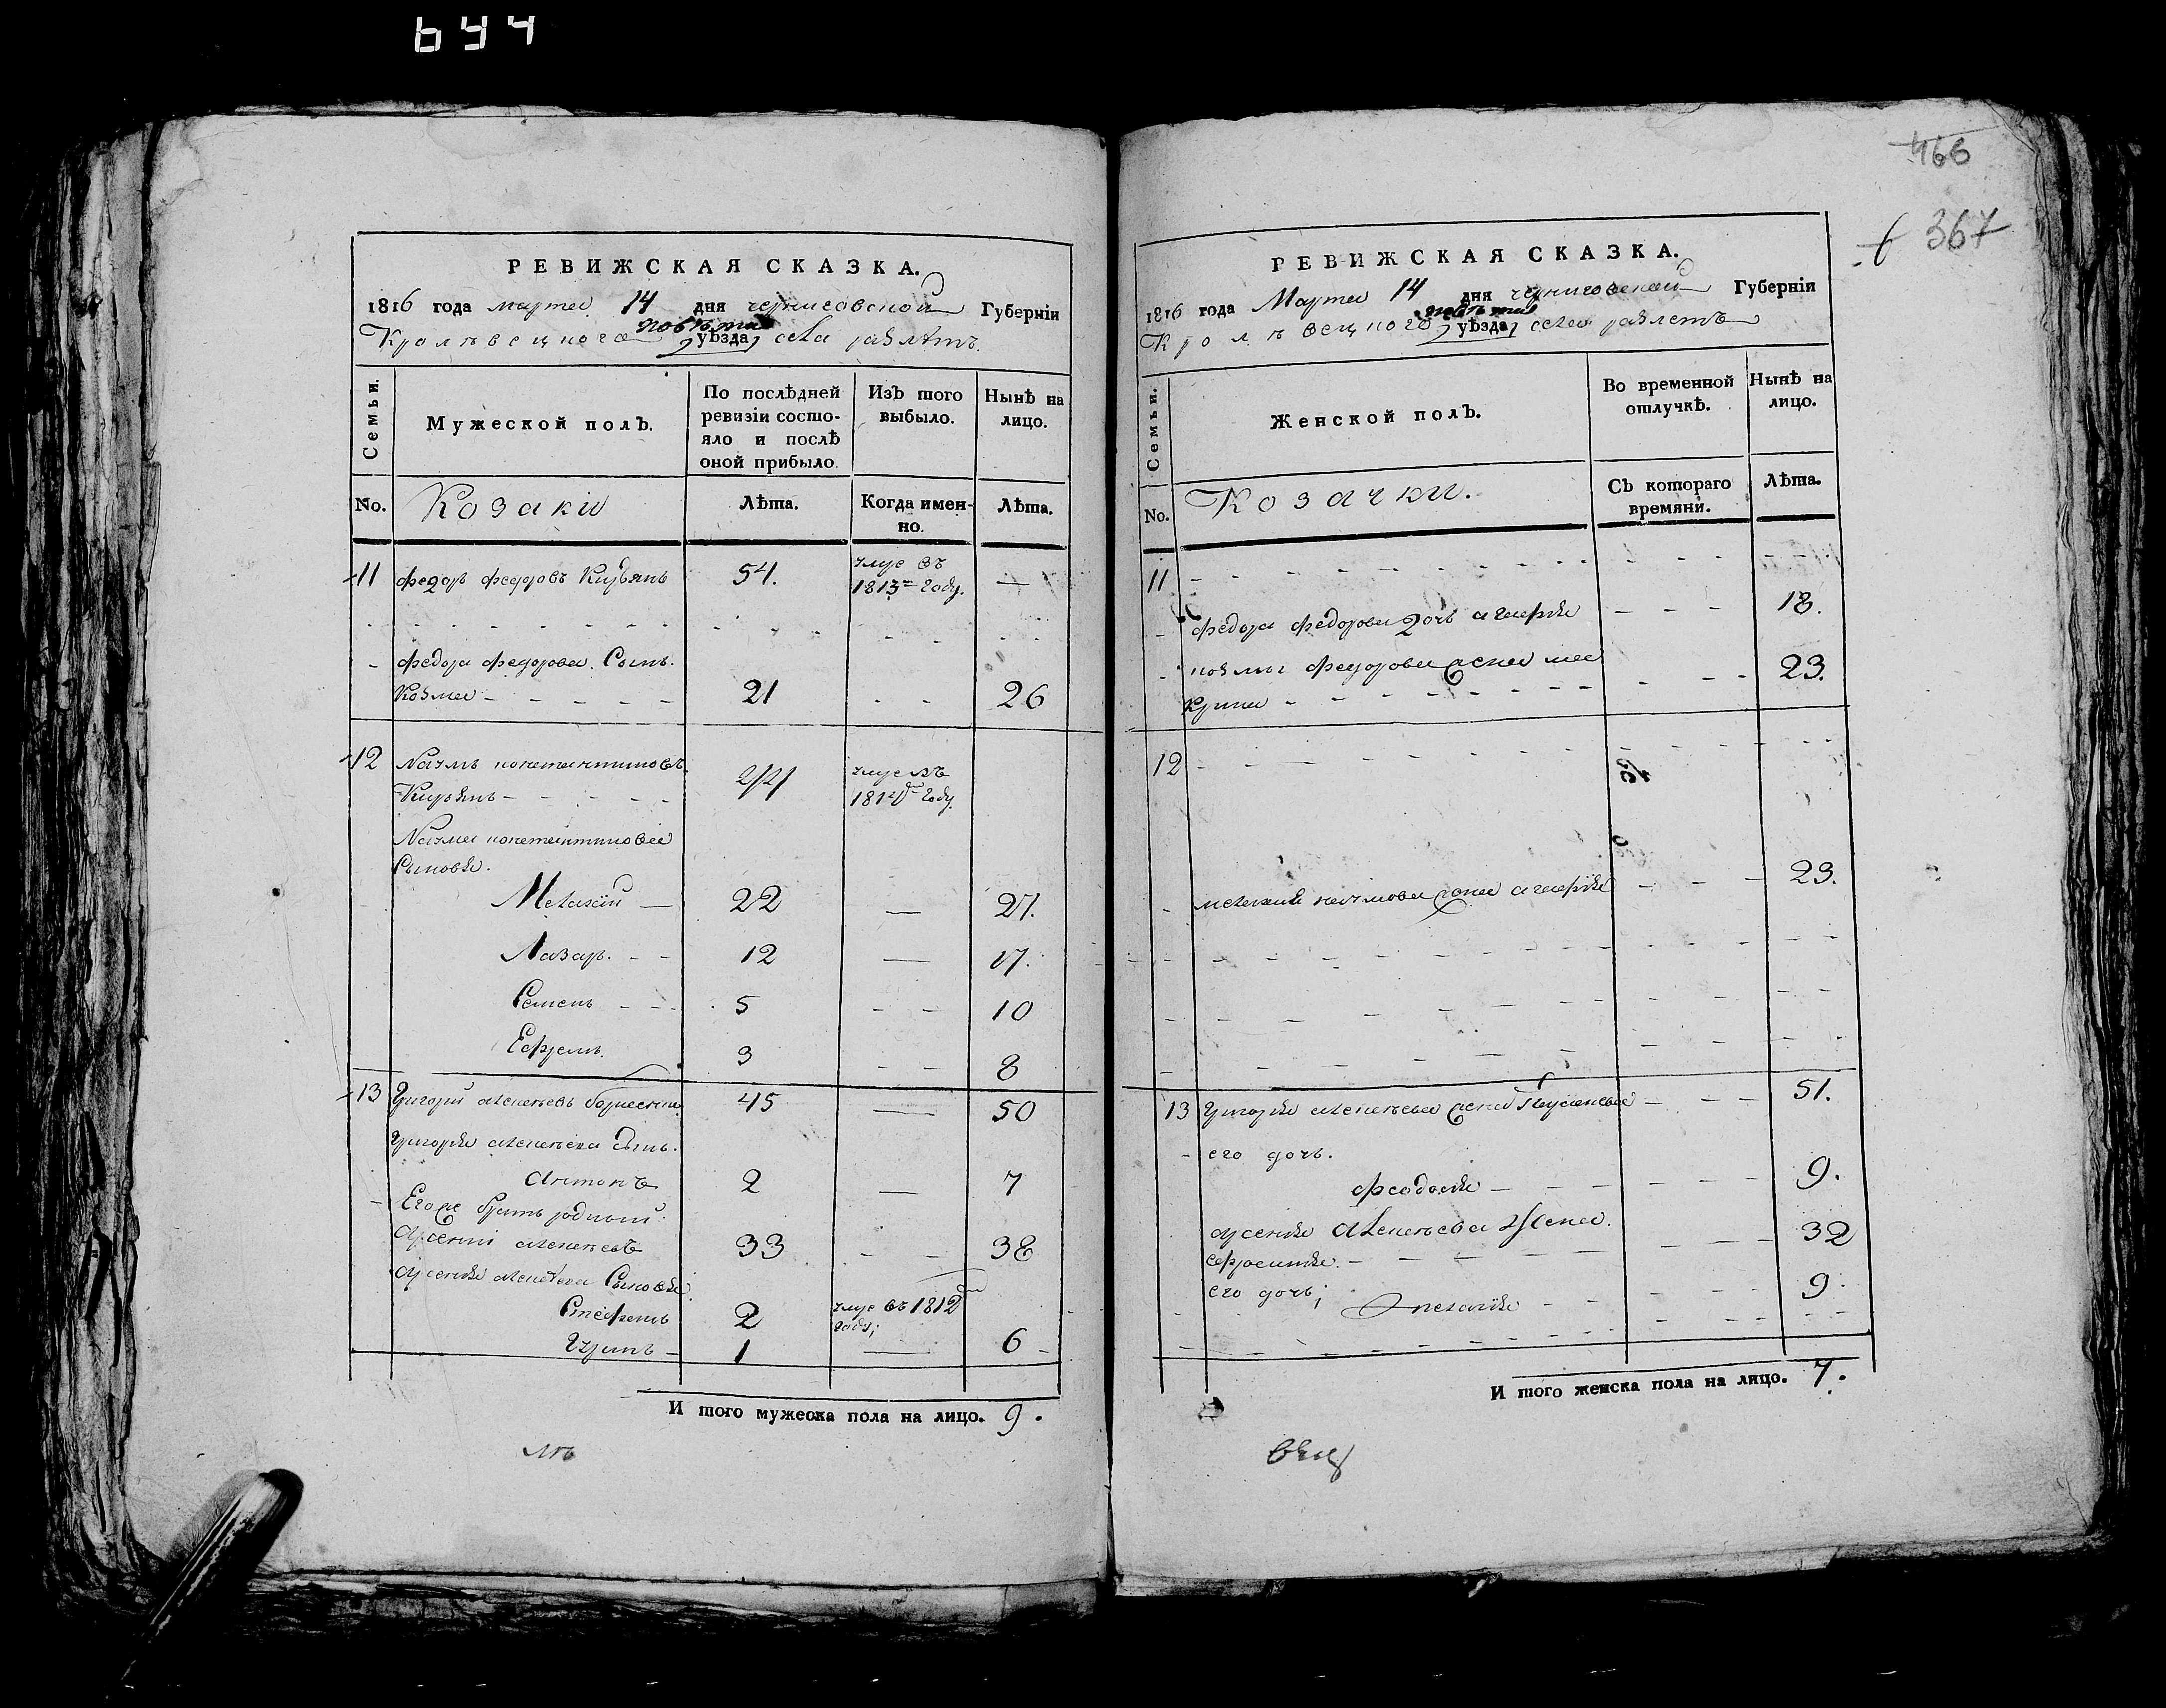 644
466
367
РЕВИЖСКАЯ СКАЗКА.
1816 года марта 14 дня черниговской Губерніи
Кролевецкого повета уѣзда села разлѣтъ.
Семьи.
Мужеской полъ.
По послѣдней ревизіи состояло и послѣ оной прибыло.
Изъ того выбыло.
Нынѣ на лицо.
No.
Козаки
Лѣта.
Когда именно.
Лѣта.
11 федоръ федоровъ Кирьянъ 54. умре въ 1813м году. —
федора федорова Сынъ.
Козма 21 26
12 Наумъ константиновъ
Кирьянъ умре въ году
Наума константинова
Сыновья.
Мелахий — 22 — 27.
Лазаръ. 12 — 17.
Семенъ 5 10
Ефремъ. 3 8
13 Григорий алексеевъ 45 — 50
Григорья алексеева Сынъ.
антонъ 2 — 7
Егоже братъ родный
арсений алексеевъ 33 38
арсенья алексеева Сыновья
Стефанъ 2 умре въ 1812м году;
1 — 6
И того мужеска пола на лицо. 9.
лѣ
РЕВИЖСКАЯ СКАЗКА.
1816 года Марта 14 дня черниговской Губерніи
Кролѣвецкого повета уѣзда села разлетъ
Семьи.
Женской полъ.
Во временной отлучкѣ.
Нынѣ на лицо.
No.
Козачки.
Съ котораго времяни.
Лѣта.
11
федора федорова дочь агафья 18.
козмы федорова жена ма
крина 23.
12
мелахия наумова жена агафья 23.
13 Григорья алексеева жена 51.
его дочь.
феодосья 9.
арсенья алексеева Жена.
ефросинья. 32
его дочь;
9.
И того женска пола на лицо. 7.
вец